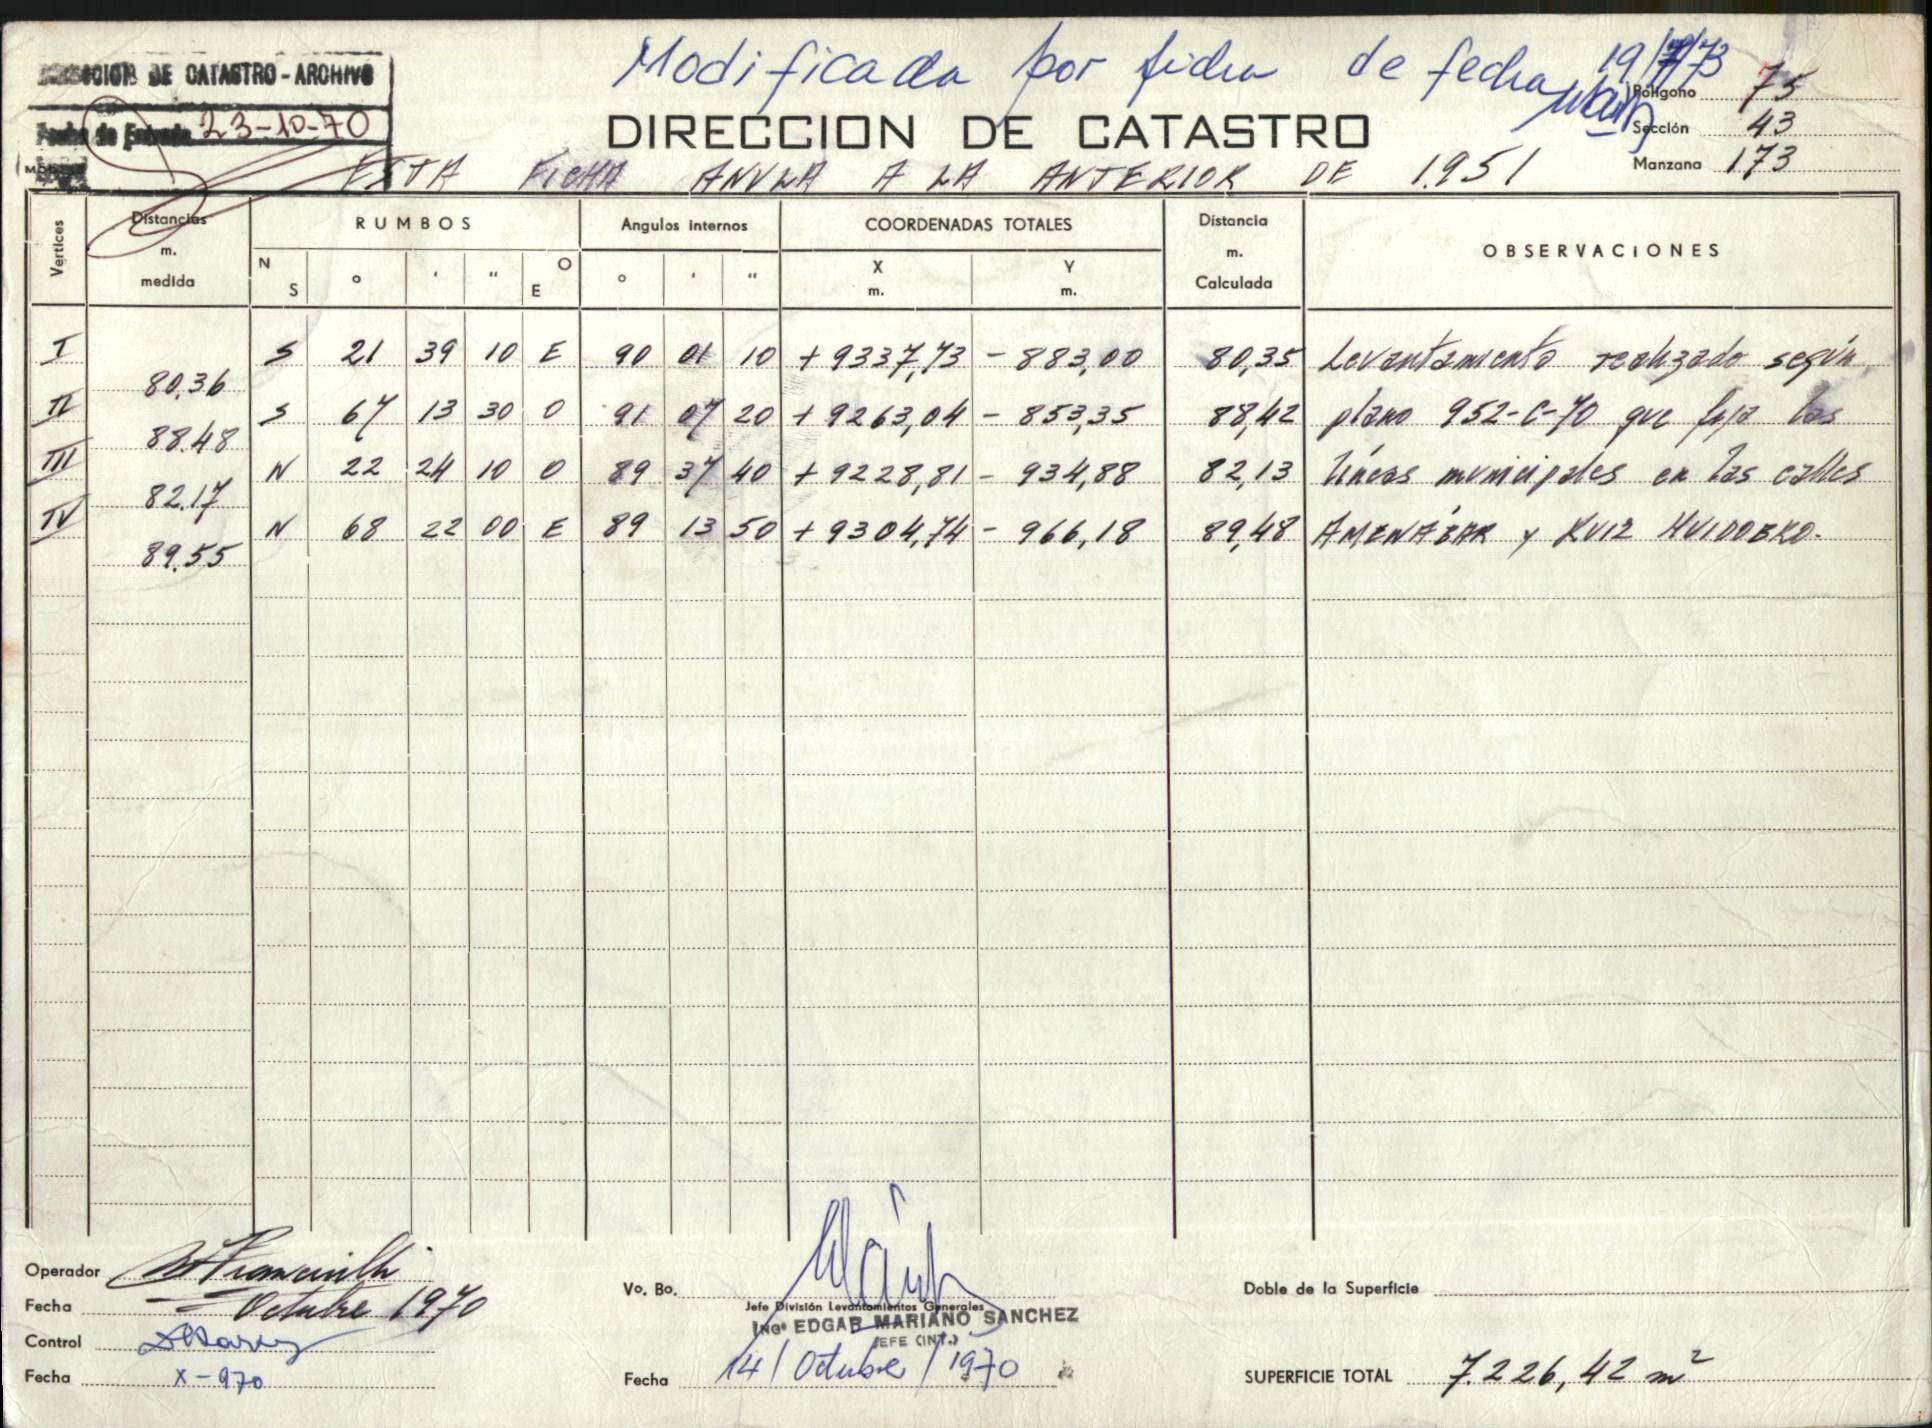 Modificada por ficha de fecha 19/7/73
DIRECCION DE CATASTRO - ARCHIVO
Fecha de Entrada 23-10-70
DIRECCION DE CATASTRO
Polígono 75
Sección 43
Manzana 173
ESTA FICHA ANULA A LA ANTERIOR DE 1.951
Vertices Distancias m. medida RUMBOS Angulos internos COORDENADAS TOTALES Distancia m. Calculada OBSERVACIONES
N S ° ' " O E ° ' " X m. Y m.
I S 21 39 10 E 90 01 10 + 9337,73 - 883,00 80,35 Levantamiento realizado según
80.36
II S 67 13 30 O 91 07 20 + 9263,04 - 853,35 88,42 plano 952-C-70 que fija las
88.48
III N 22 24 10 O 89 37 40 + 9228,81 - 934,88 82,13 líneas municipales en las calles
82.17
IV N 68 22 00 E 89 13 50 + 9304,74 - 966,18 89,48 AMENÁBAR y RUIZ HUIDOBRO.
89.55
Operador
Fecha Octubre 1970
Control
Fecha X-970
Vo. Bo.
Jefe División Levantamientos Generales
ING° EDGAR MARIANO SANCHEZ
JEFE (INT.)
Fecha 14/Octubre/1970
Doble de la Superficie
SUPERFICIE TOTAL 7.226,42 m²